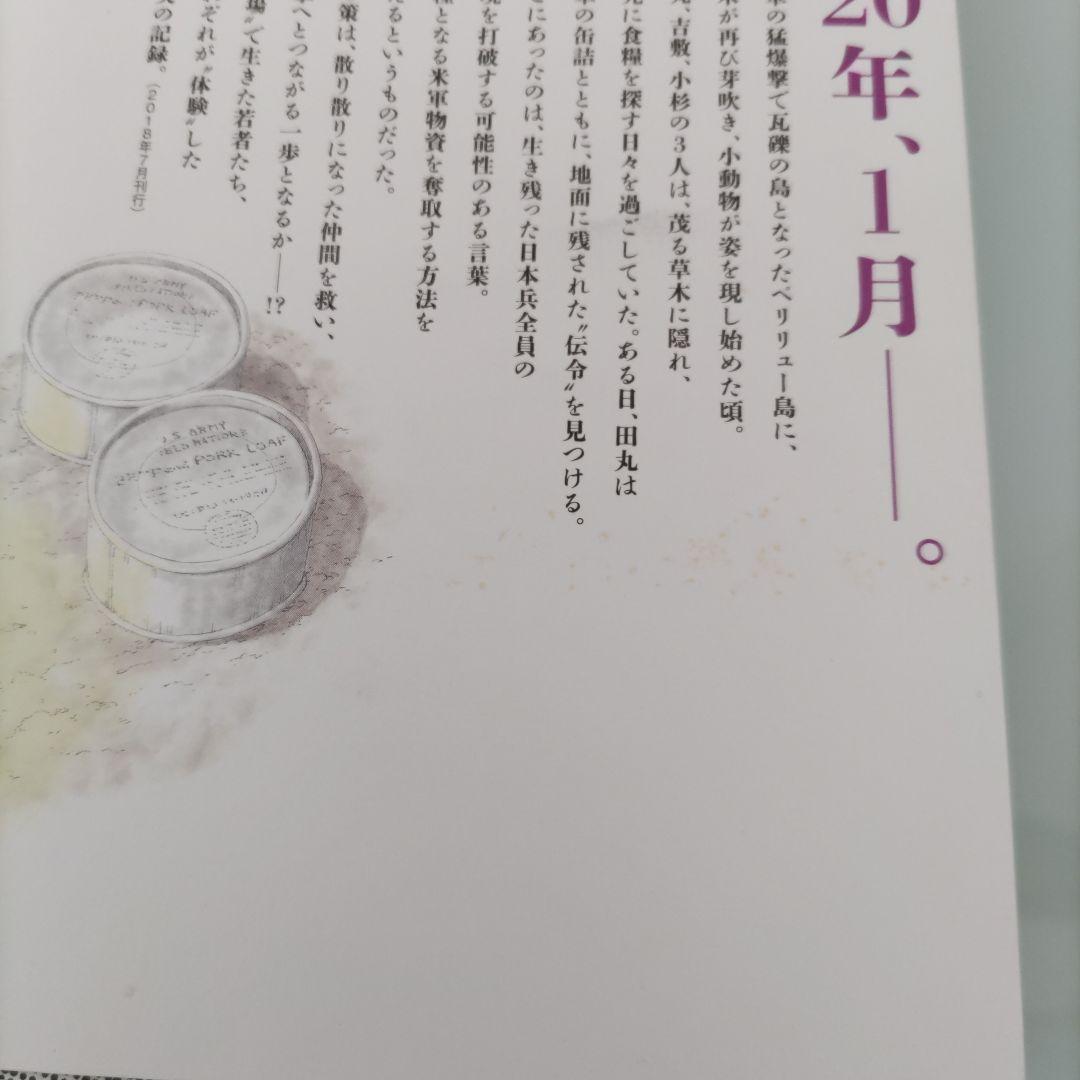 20年、1月――。
の猛爆撃で瓦礫の島となったペリリュー島に、
が再び芽吹き、小動物が姿を現し始めた頃。
、吉敷、小杉の3人は、茂る草木に隠れ、
に食糧を探す日々を過ごしていた。ある日、田丸は
の缶詰とともに、地面に残された〝伝令〟を見つける。
にあったのは、生き残った日本兵全員の
を打破する可能性のある言葉。
となる米軍物資を奪取する方法を
えるというものだった。
策は、散り散りになった仲間を救い、
へとつながる一歩となるか――!?
場〟で生きた若者たち、
れぞれが〝体験〟した
の記録。(2018年7月刊行)
U.S. ARMY
FIELD RATIONS
PORK LOAF
PORK LOAF